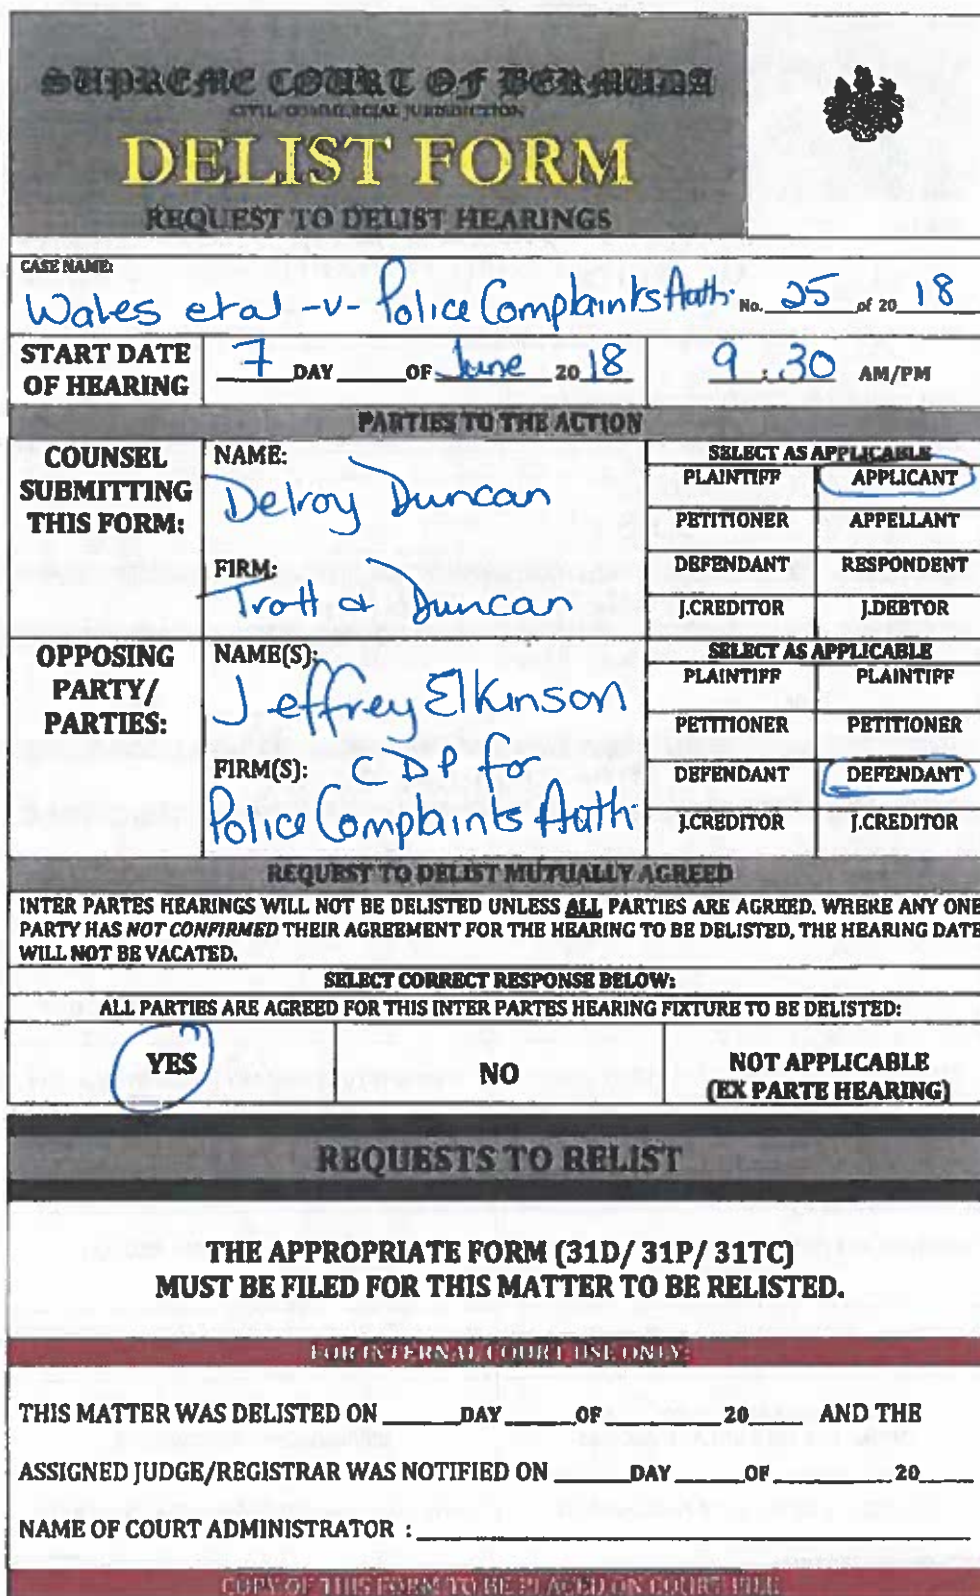 SUPREME COURT OF BERMUDA
CIVIL/COMMERCIAL JURISDICTION
DELIST FORM
REQUEST TO DELIST HEARINGS
CASE NAME:
Wales et al -v- Police Complaints Auth. No. 25 of 20 18
START DATE OF HEARING
7 DAY OF June 20 18
9 : 30 AM/PM
PARTIES TO THE ACTION
COUNSEL SUBMITTING THIS FORM:
NAME:
Delroy Duncan
FIRM:
Trott & Duncan
SELECT AS APPLICABLE
PLAINTIFF APPLICANT
PETITIONER APPELLANT
DEFENDANT RESPONDENT
J.CREDITOR J.DEBTOR
OPPOSING PARTY/ PARTIES:
NAME(S):
Jeffrey Elkinson
FIRM(S): CDP for
Police Complaints Auth.
SELECT AS APPLICABLE
PLAINTIFF PLAINTIFF
PETITIONER PETITIONER
DEFENDANT DEFENDANT
J.CREDITOR J.CREDITOR
REQUEST TO DELIST MUTUALLY AGREED
INTER PARTES HEARINGS WILL NOT BE DELISTED UNLESS ALL PARTIES ARE AGREED. WHERE ANY ONE
PARTY HAS NOT CONFIRMED THEIR AGREEMENT FOR THE HEARING TO BE DELISTED, THE HEARING DATE
WILL NOT BE VACATED.
SELECT CORRECT RESPONSE BELOW:
ALL PARTIES ARE AGREED FOR THIS INTER PARTES HEARING FIXTURE TO BE DELISTED:
YES
NO
NOT APPLICABLE
(EX PARTE HEARING)
REQUESTS TO RELIST
THE APPROPRIATE FORM (31D/ 31P/ 31TC)
MUST BE FILED FOR THIS MATTER TO BE RELISTED.
FOR INTERNAL COURT USE ONLY:
THIS MATTER WAS DELISTED ON ____DAY____OF______20____ AND THE
ASSIGNED JUDGE/REGISTRAR WAS NOTIFIED ON ______DAY____OF________20____
NAME OF COURT ADMINISTRATOR : ____________________
COPY OF THIS FORM TO BE PLACED ON COURT FILE